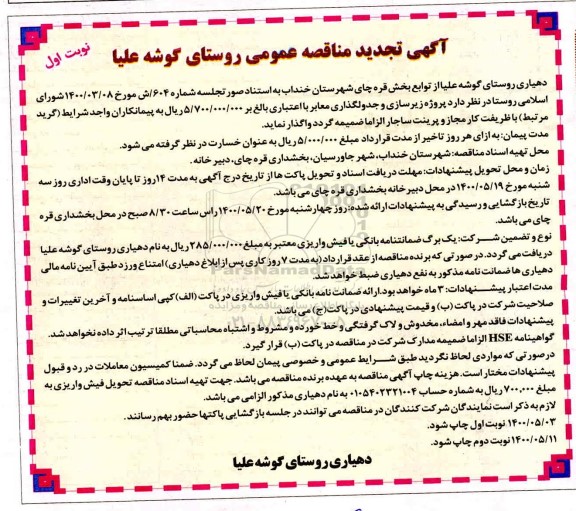 آگهی تجدید مناقصه عمومی روستای گوشه علیا
نوبت اول
دهیاری روستای گوشه علیا از توابع بخش قره چای شهرستان خنداب به استناد صورتجلسه شماره ۶۰۴/ش مورخ ۱۴۰۰/۰۳/۰۸ شورای
اسلامی روستا در نظر دارد پروژه زیرسازی و جدولگذاری معابر با اعتباری بالغ بر ۵/۷۰۰/۰۰۰/۰۰۰ ریال به پیمانکاران واجد شرایط (گرید
مرتبط) با ظریفت کار مجاز و پرینت ساجار الزاما ضمیمه گردد واگذار نماید.
مدت پیمان: به ازای هر روز تاخیر از مدت قرارداد مبلغ ۵/۰۰۰/۰۰۰ ریال به عنوان خسارت در نظر گرفته می شود.
محل تهیه اسناد مناقصه: شهرستان خنداب، شهر جاورسیان، بخشداری قره چای، دبیر خانه.
زمان و محل تحویل پیشنهادات: مهلت دریافت اسناد و تحویل پاکت ها از تاریخ درج آگهی به مدت ۱۴ روز تا پایان وقت اداری روز سه
شنبه مورخ ۱۴۰۰/۰۵/۱۹ در محل دبیر خانه بخشداری قره چای می باشد.
تاریخ بازگشایی و رسیدگی به پیشنهادات ارائه شده: روز چهارشنبه مورخ ۱۴۰۰/۰۵/۲۰ راس ساعت ۸/۳۰ صبح در محل بخشداری قره
چای می باشد.
نوع و تضمین شرکت: یک برگ ضمانتنامه بانکی یا فیش واریزی معتبر به مبلغ ۲۸۵/۰۰۰/۰۰۰ ریال به نام دهیاری روستای گوشه علیا
دریافت می گردد. در صورتی که برنده مناقصه از عقد قرارداد (به مدت ۷ روز کاری پس از ابلاغ دهیاری) امتناع ورزد طبق آیین نامه مالی
دهیاری ها ضمانت نامه مذکور به نفع دهیاری ضبط خواهد شد.
مدت اعتبار پیشنهادات: ۳ ماه خواهد بود. ارائه ضمانت نامه بانکی یا فیش واریزی در پاکت (الف) کپی اساسنامه و آخرین تغییرات و
صلاحیت شرکت در پاکت (ب) و قیمت پیشنهادی در پاکت (ج) می باشد.
پیشنهادات فاقد مهر و امضاء، مخدوش و لاک گرفتگی و خط خورده و مشروط و اشتباه محاسباتی مطلقا ترتیب اثر داده نخواهد شد.
گواهینامه HSE الزاما ضمیمه مدارک شرکت در مناقصه در پاکت (ب) قرار گیرد.
در صورتی که مواردی لحاظ نگردید طبق شرایط عمومی و خصوصی پیمان لحاظ می گردد. ضمنا کمیسیون معاملات در رد و قبول
پیشنهادات مختار است. هزینه چاپ آگهی مناقصه به عهده برنده مناقصه می باشد. جهت تهیه اسناد مناقصه تحویل فیش واریزی به
مبلغ ۷۰۰,۰۰۰ ریال به شماره حساب ۰۱۰۵۴۰۲۳۲۱۰۰۴ به نام دهیاری مذکور الزامی می باشد.
لازم به ذکر است نمایندگان شرکت کنندگان در مناقصه می توانند در جلسه بازگشایی پاکتها حضور بهم رسانند.
۱۴۰۰/۰۵/۰۳ نوبت اول چاپ شود.
۱۴۰۰/۰۵/۱۱ نوبت دوم چاپ شود.
دهیاری روستای گوشه علیا